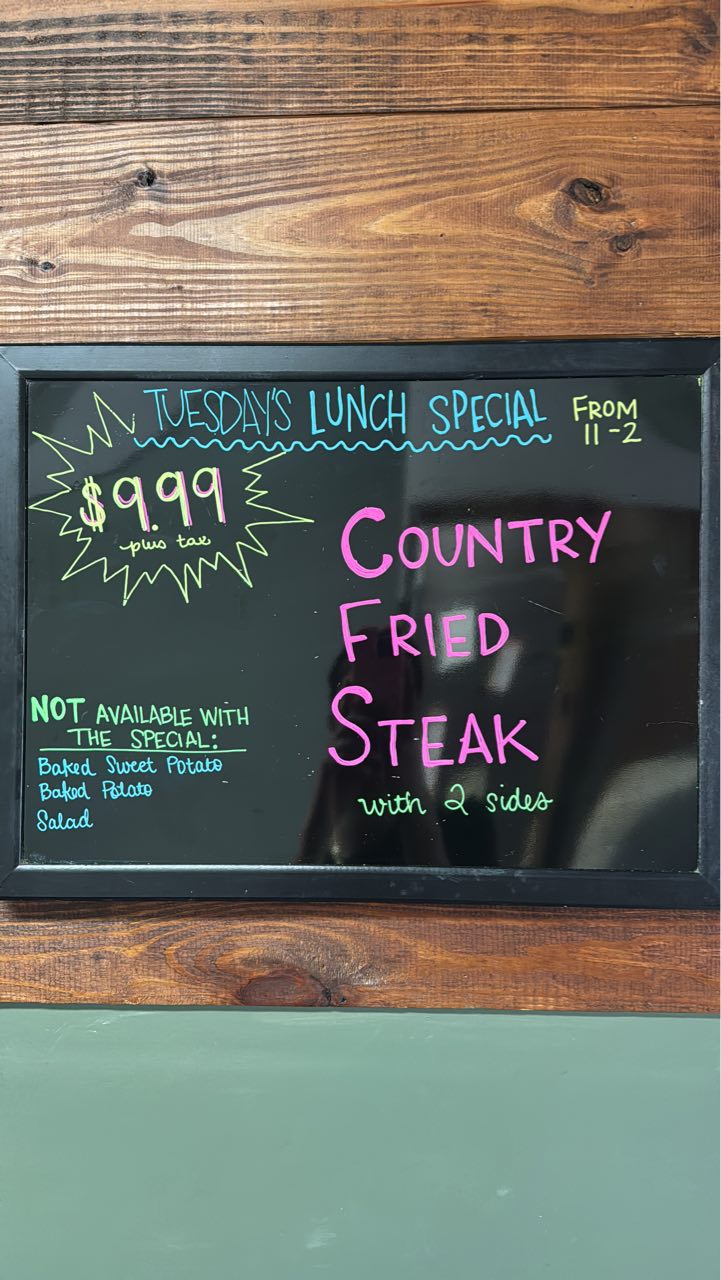 TUESDAY'S LUNCH SPECIAL
FROM
11-2
$9.99
plus tax
COUNTRY
FRIED
STEAK
with 2 sides
NOT AVAILABLE WITH
THE SPECIAL:
Baked Sweet Potato
Baked Potato
Salad